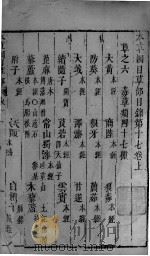 本草綱目草部目錄第十七卷上
草之六 毒草類四十七種
大黃本經 商陸本經 狼毒本經
防葵本經 狼牙本經 本經
大戟本經 澤漆本經 甘遂本經
續隨子開寶 莨菪本經 雲實本經
蓖麻唐本 常山蜀漆本經
藜蘆本經 木藜蘆拾遺
附子本經 天雄本經 白附子別錄